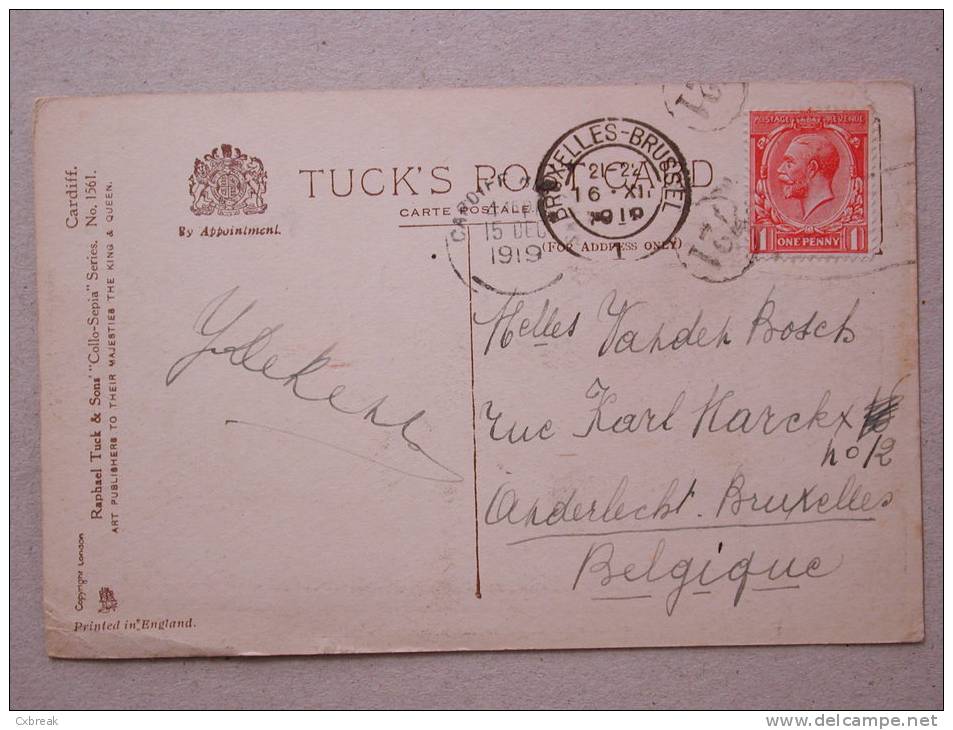 Cardiff.
Raphael Tuck & Sons' "Collo-Sepia" Series. No. 1561.
ART PUBLISHERS TO THEIR MAJESTIES THE KING & QUEEN.
Copyright London
Printed in England.
By Appointment.
TUCK'S POST CARD
CARTE POSTALE.
(FOR ADDRESS ONLY)
CARDIFF
15 DEC
1919
BRUXELLES-BRUSSEL
21-22
16 XII
1919
1
POSTAGE REVENUE
1 ONE PENNY 1
Melles Vanden Bosch
rue Karl Marckx
no 12
Anderlecht. Bruxelles
Belgique
Cxbreak
www.delcampe.net